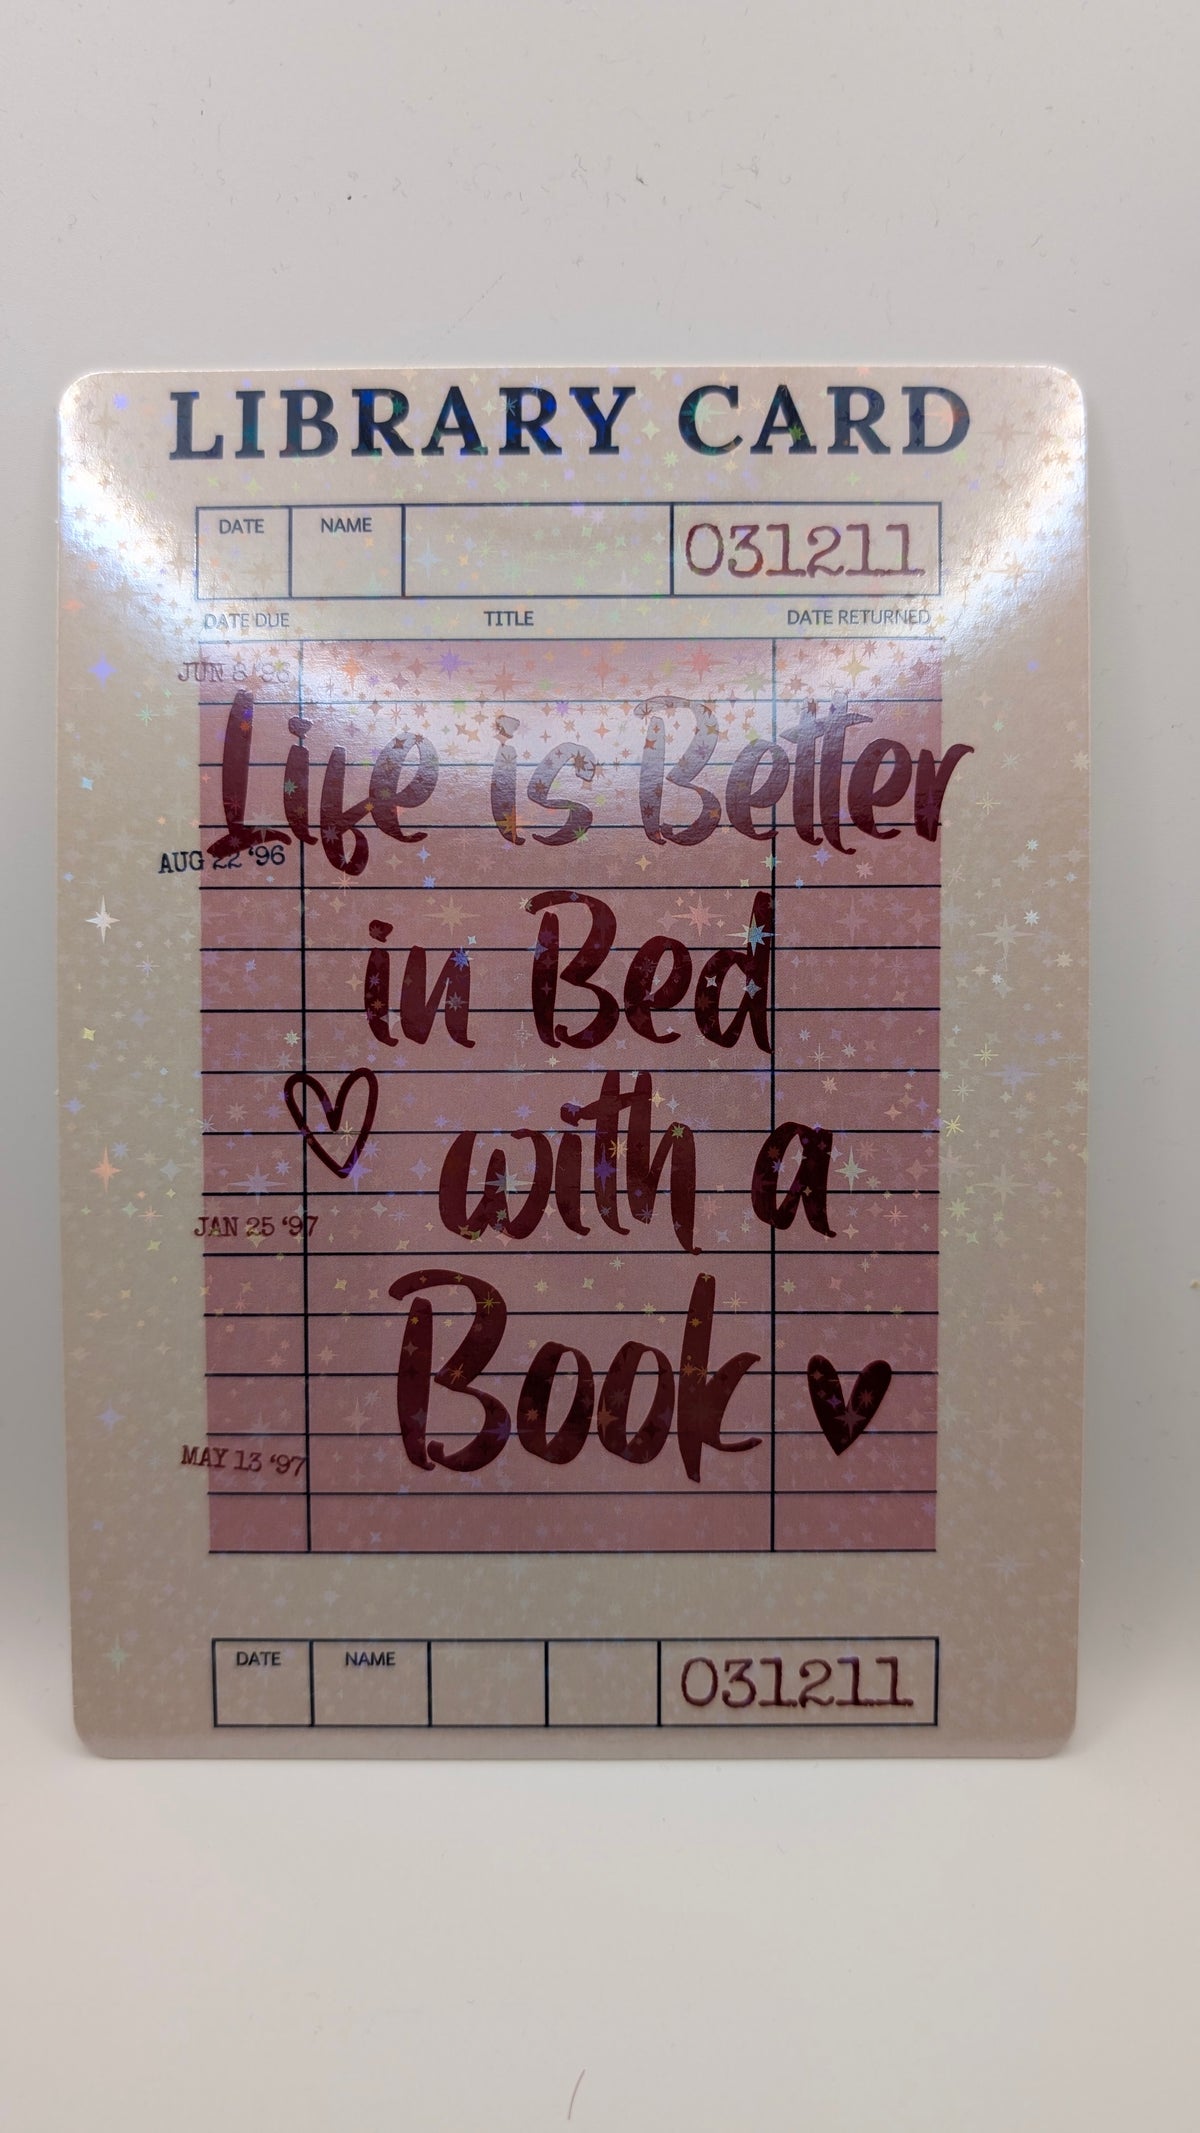 LIBRARY CARD
DATE NAME 031211
DATE DUE TITLE DATE RETURNED
JUN 8 '96
Life is Better
AUG 22 '96
in Bed
with a
JAN 25 '97
Book
MAY 13 '97
DATE NAME 031211